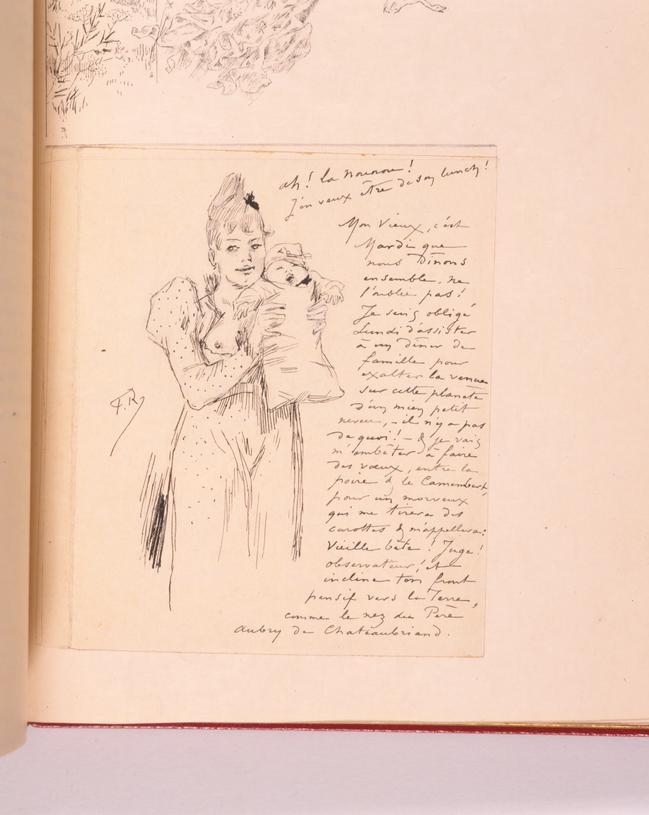 ah! la nounou!
J'en veux être de son lunch!
Mon Vieux, c'est
Mardi que
nous Dînons
ensemble, ne
l'oublie pas!
Je suis obligé
Lundi d'assister
à un dîner de
famille pour
exalter la venue
sur cette planète
d'un mien petit
neveu, - il n'y a pas
de quoi! - & je vais
m'embêter à faire
des vœux, entre la
poire & le Camembert,
pour un morveux
qui me tirera des
carottes & m'appellera:
Vieille bête! Juge!
observateur, et
incline ton front
pensif vers la Terre,
comme le nez du Père
Aubry de Chateaubriand.
F.R.